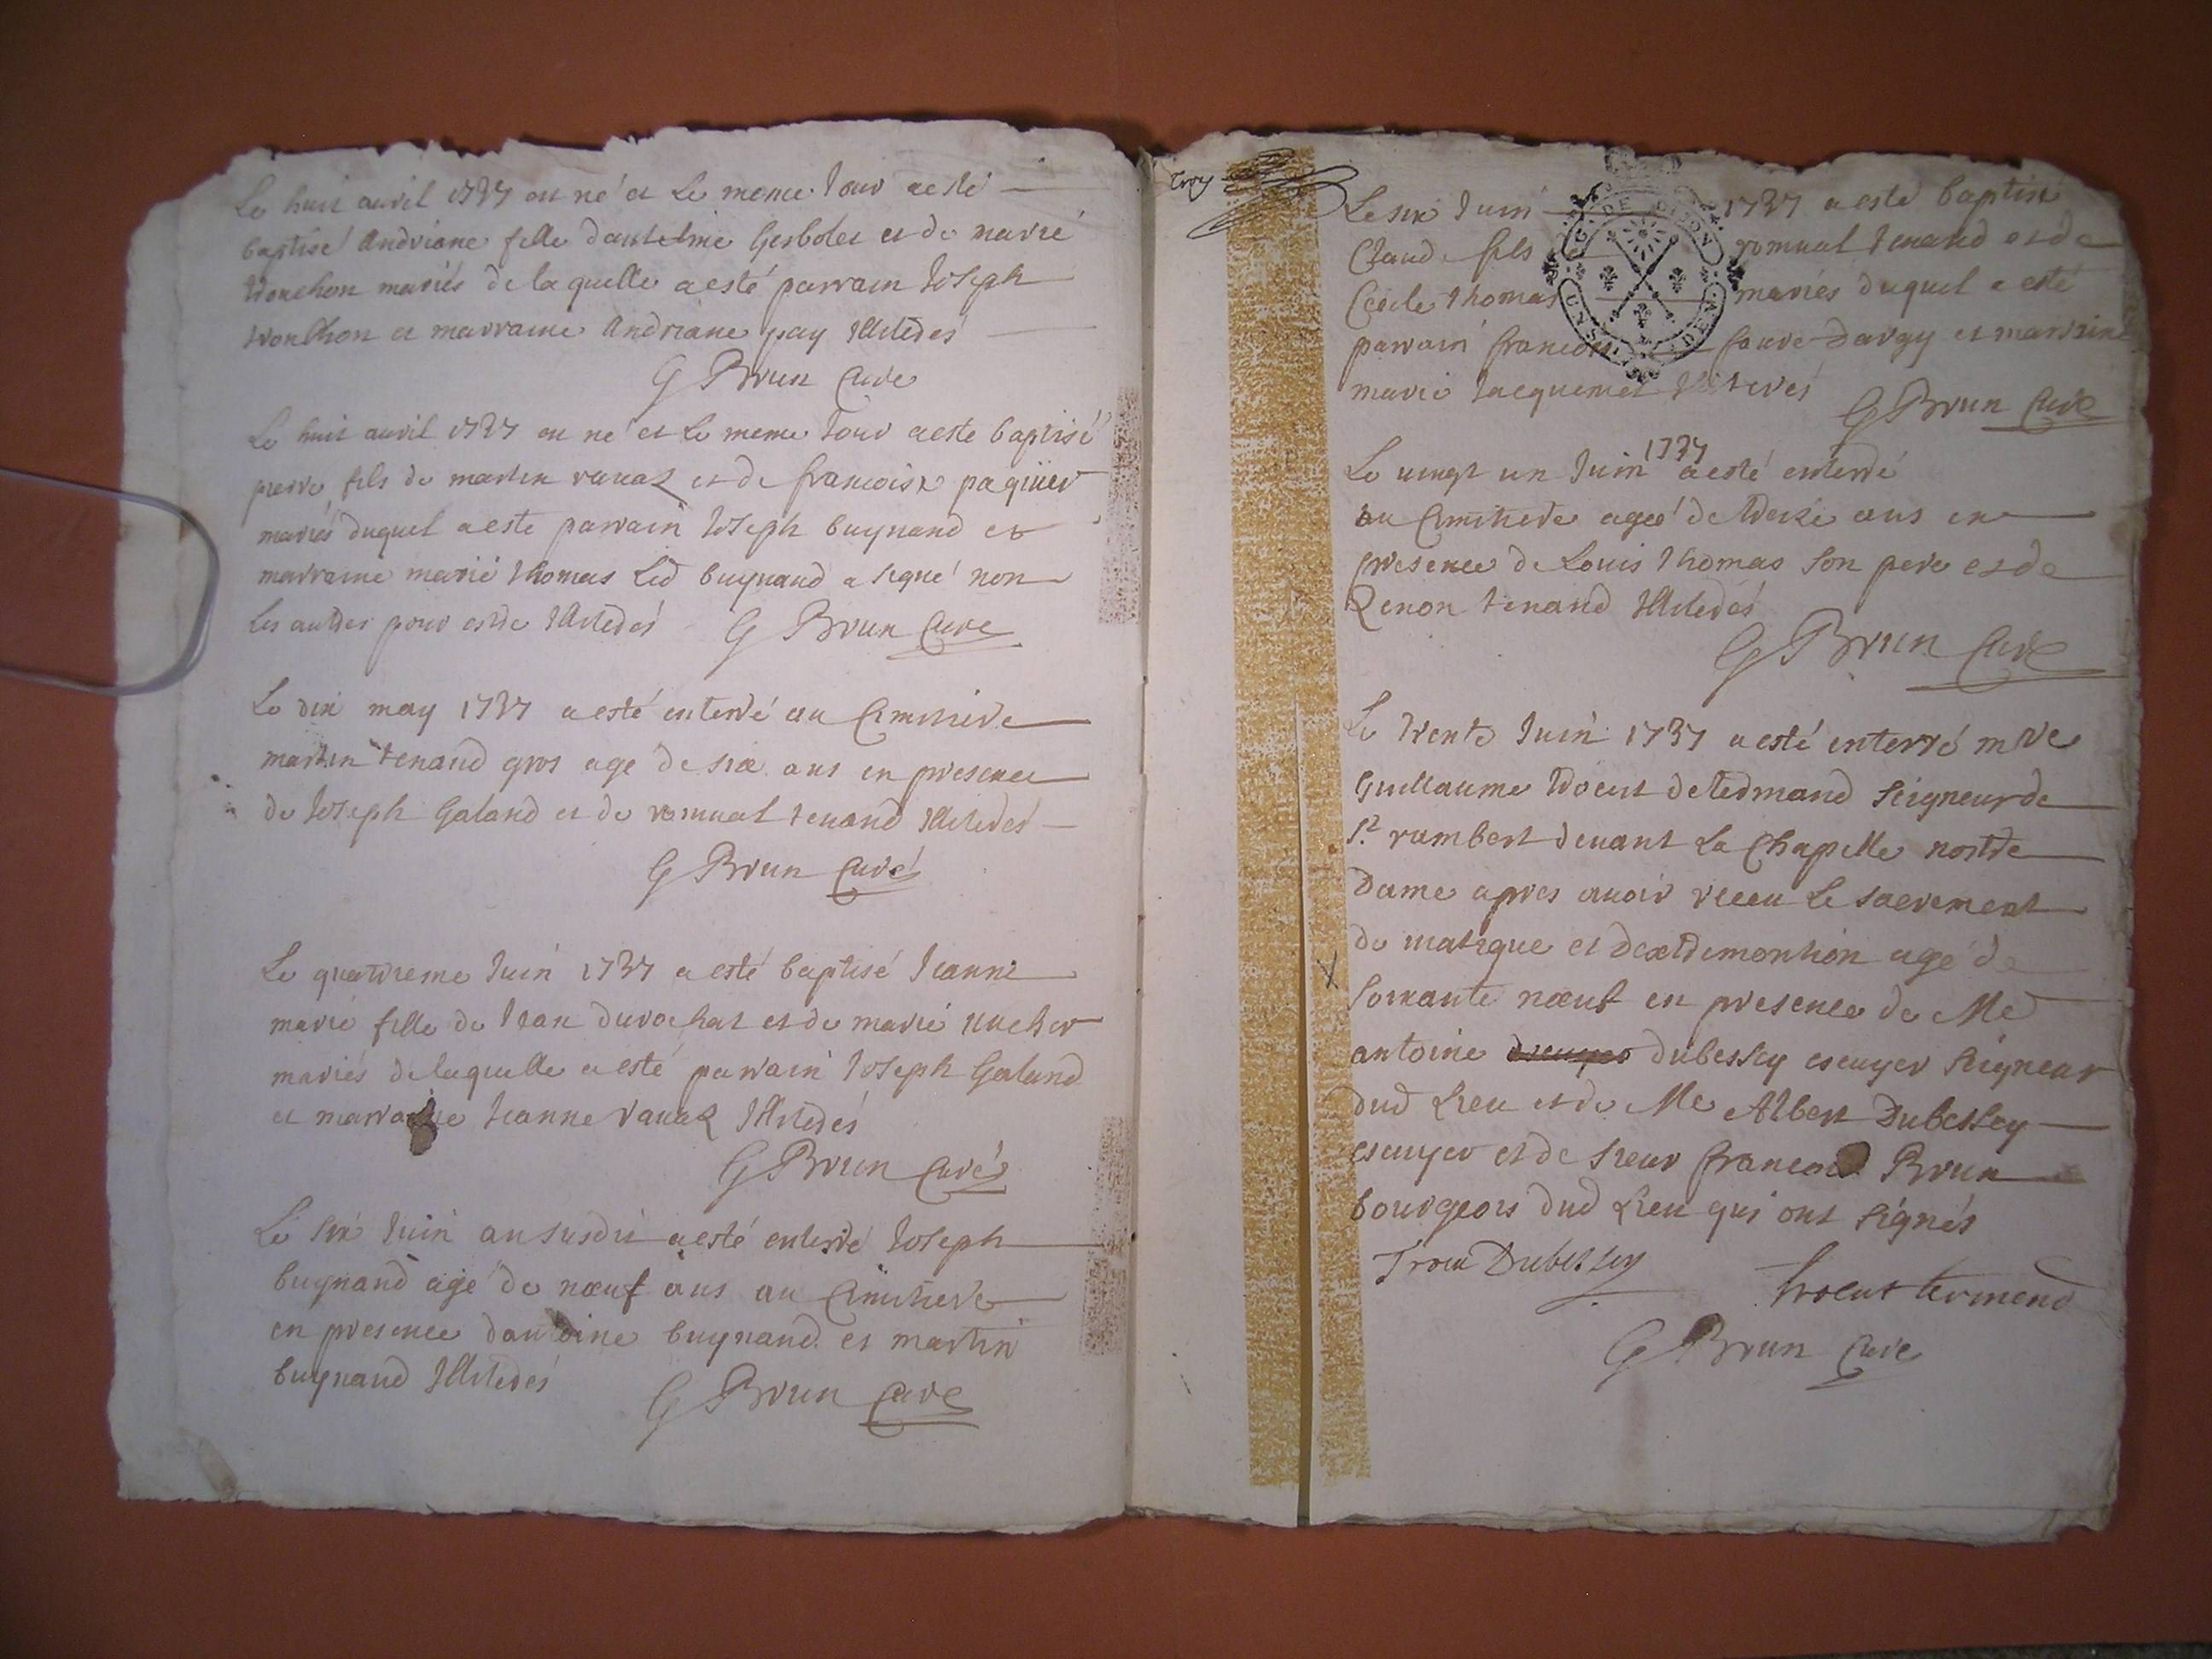 Le huit auril 1737 est né et Le meme Jour a esté
baptisé Andriane fille dantelme Gerbolet et de marie
trouchon mariés de laquelle a esté parrain Joseph
trouchon et marraine Andriane pay Illiterés
G Brun Curé
Le huit auril 1737 est né et Le meme Jour a esté baptisé
pierre fils de martin rauaz et de francoise paquier
mariés duquel a este parrain Joseph buynand et
marraine marie thomas Led buynand a signé non
Les autres pour estre Illiterés G Brun Curé
Le dix may 1737 a esté enterré au Cimitiere
martin tenand gros age de six ans en presence
de Joseph Galand et de romual tenand Illiterés
G Brun Curé
Le quatrieme Juin 1737 a esté baptisé Jeanne
marie fille de Jean durochat et de marie
mariés de laquelle a esté parrain Joseph Galand
et marraine Jeanne rauaz Illiterés
G Brun Curé
Le six Juin an susdit a esté enterré Joseph
buynand agé de nœuf ans au Cimitiere
en presence dantoine buynand et martin
buynand Illiterés G Brun Curé
troy
Le six Juin 1737 a esté baptisé
Claude fils romual tenand et de
Cecile thomas mariés duquel a esté
parrain francois faure dargy et marraine
marie Jacquemet Illiterés G Brun Curé
G DE DIJON
Le uingt un Juin 1737 a esté enterré
au Cimitiere ageé de treize ans en
presence de Louis thomas son pere et de
Zenon tenand Illiterés
G Brun Curé
Le trente Juin 1737 a esté enterré mre
Guillaume trocut de termand seigneur de
St rambert deuant La Chapelle nostre
dame apres auoir receu le sacrement
de uiatique et dextremontion agé de
soixante nœuf en presence de Me
antoine dubessey escuyer seigneur
dud Lieu et de Me Albert Dubessey
escuyer et de sieur francois Brun
bourgeois dud Lieu qui ont signés
Dubessey
trocut termend
G Brun Curé